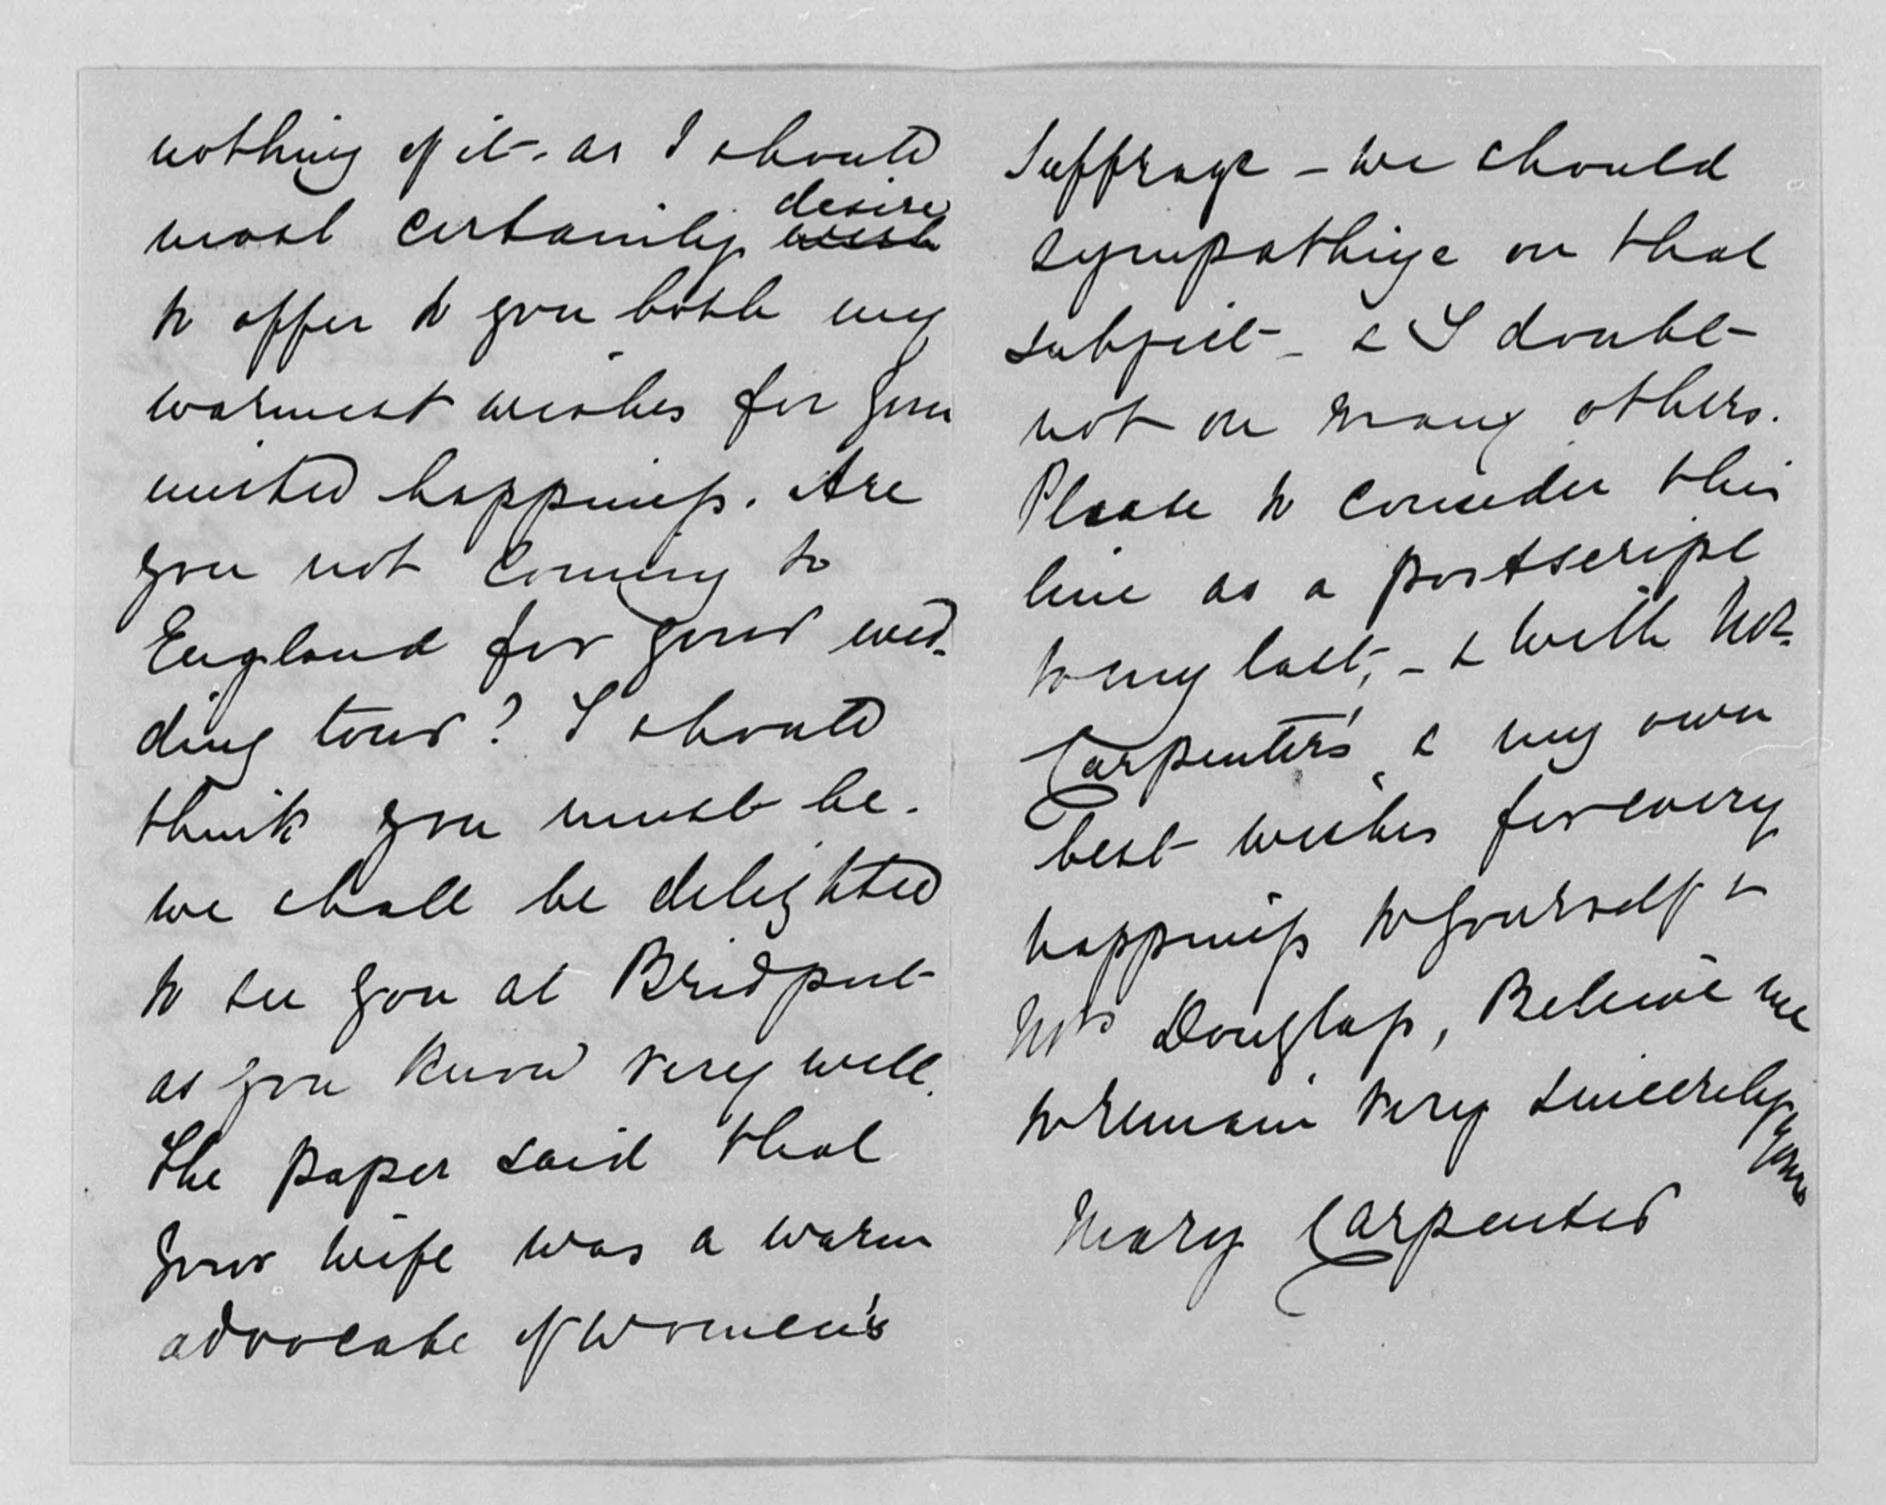 nothing of it - as I should
most certainly desire wish
to offer to you both my
warmest wishes for your
united happiness. Are
you not coming to
England for your wed-
ding tour? I should
think you must be.
we shall be delighted
to see you at Bridport
as you know very well.
The paper said that
your wife was a warm
advocate of Women's
Suffrage - we should
sympathize on that
subject - & I doubt
not on many others.
Please to consider this
line as a postscript
to my last, - & with Mr.
Carpenter's & my own
best wishes for every
happiness to yourself &
Mrs Douglass, Believe me
to remain very sincerely yours
Mary Carpenter